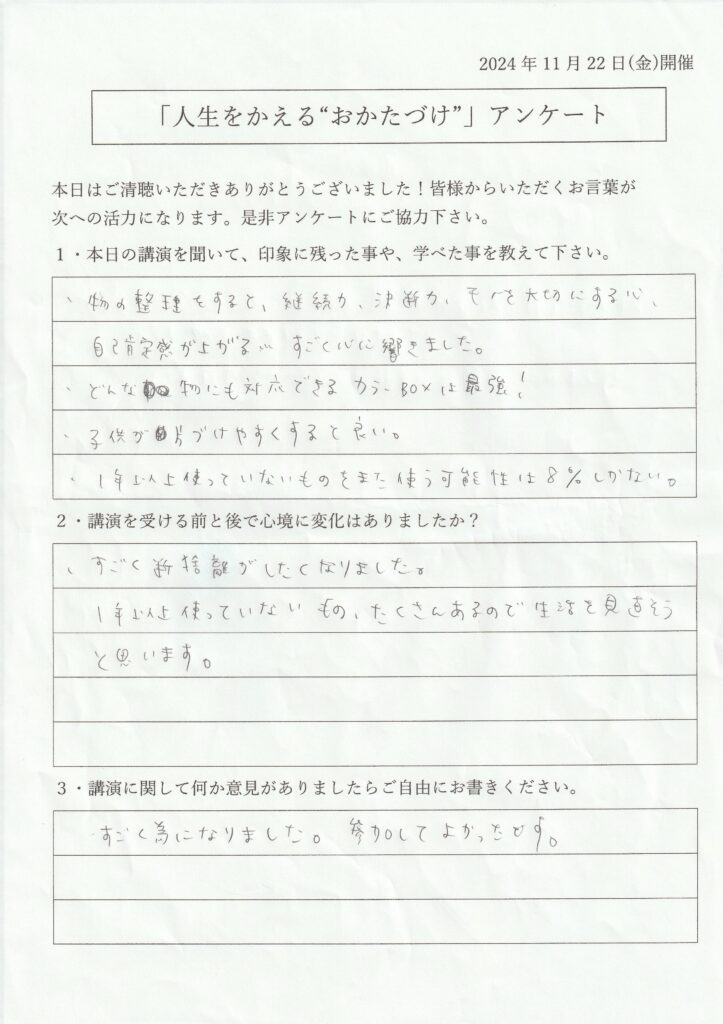 2024年11月22日(金)開催
「人生をかえる“おかたづけ”」アンケート
本日はご清聴いただきありがとうございました！皆様からいただくお言葉が
次への活力になります。是非アンケートにご協力下さい。
１・本日の講演を聞いて、印象に残った事や、学べた事を教えて下さい。
・物の整理をすると、継続力、決断力、モノを大切にする心、
自己肯定感が上がる… すごく心に響きました。
・どんな物にも対応できるカラーBOXは最強！
・子供が片づけやすくすると良い。
・1年以上使っていないものをまた使う可能性は8％しかない。
２・講演を受ける前と後で心境に変化はありましたか？
・すごく断捨離がしたくなりました。
1年以上使っていないもの、たくさんあるので生活を見直そう
と思います。
３・講演に関して何か意見がありましたらご自由にお書きください。
・すごく為になりました。参加してよかったです。